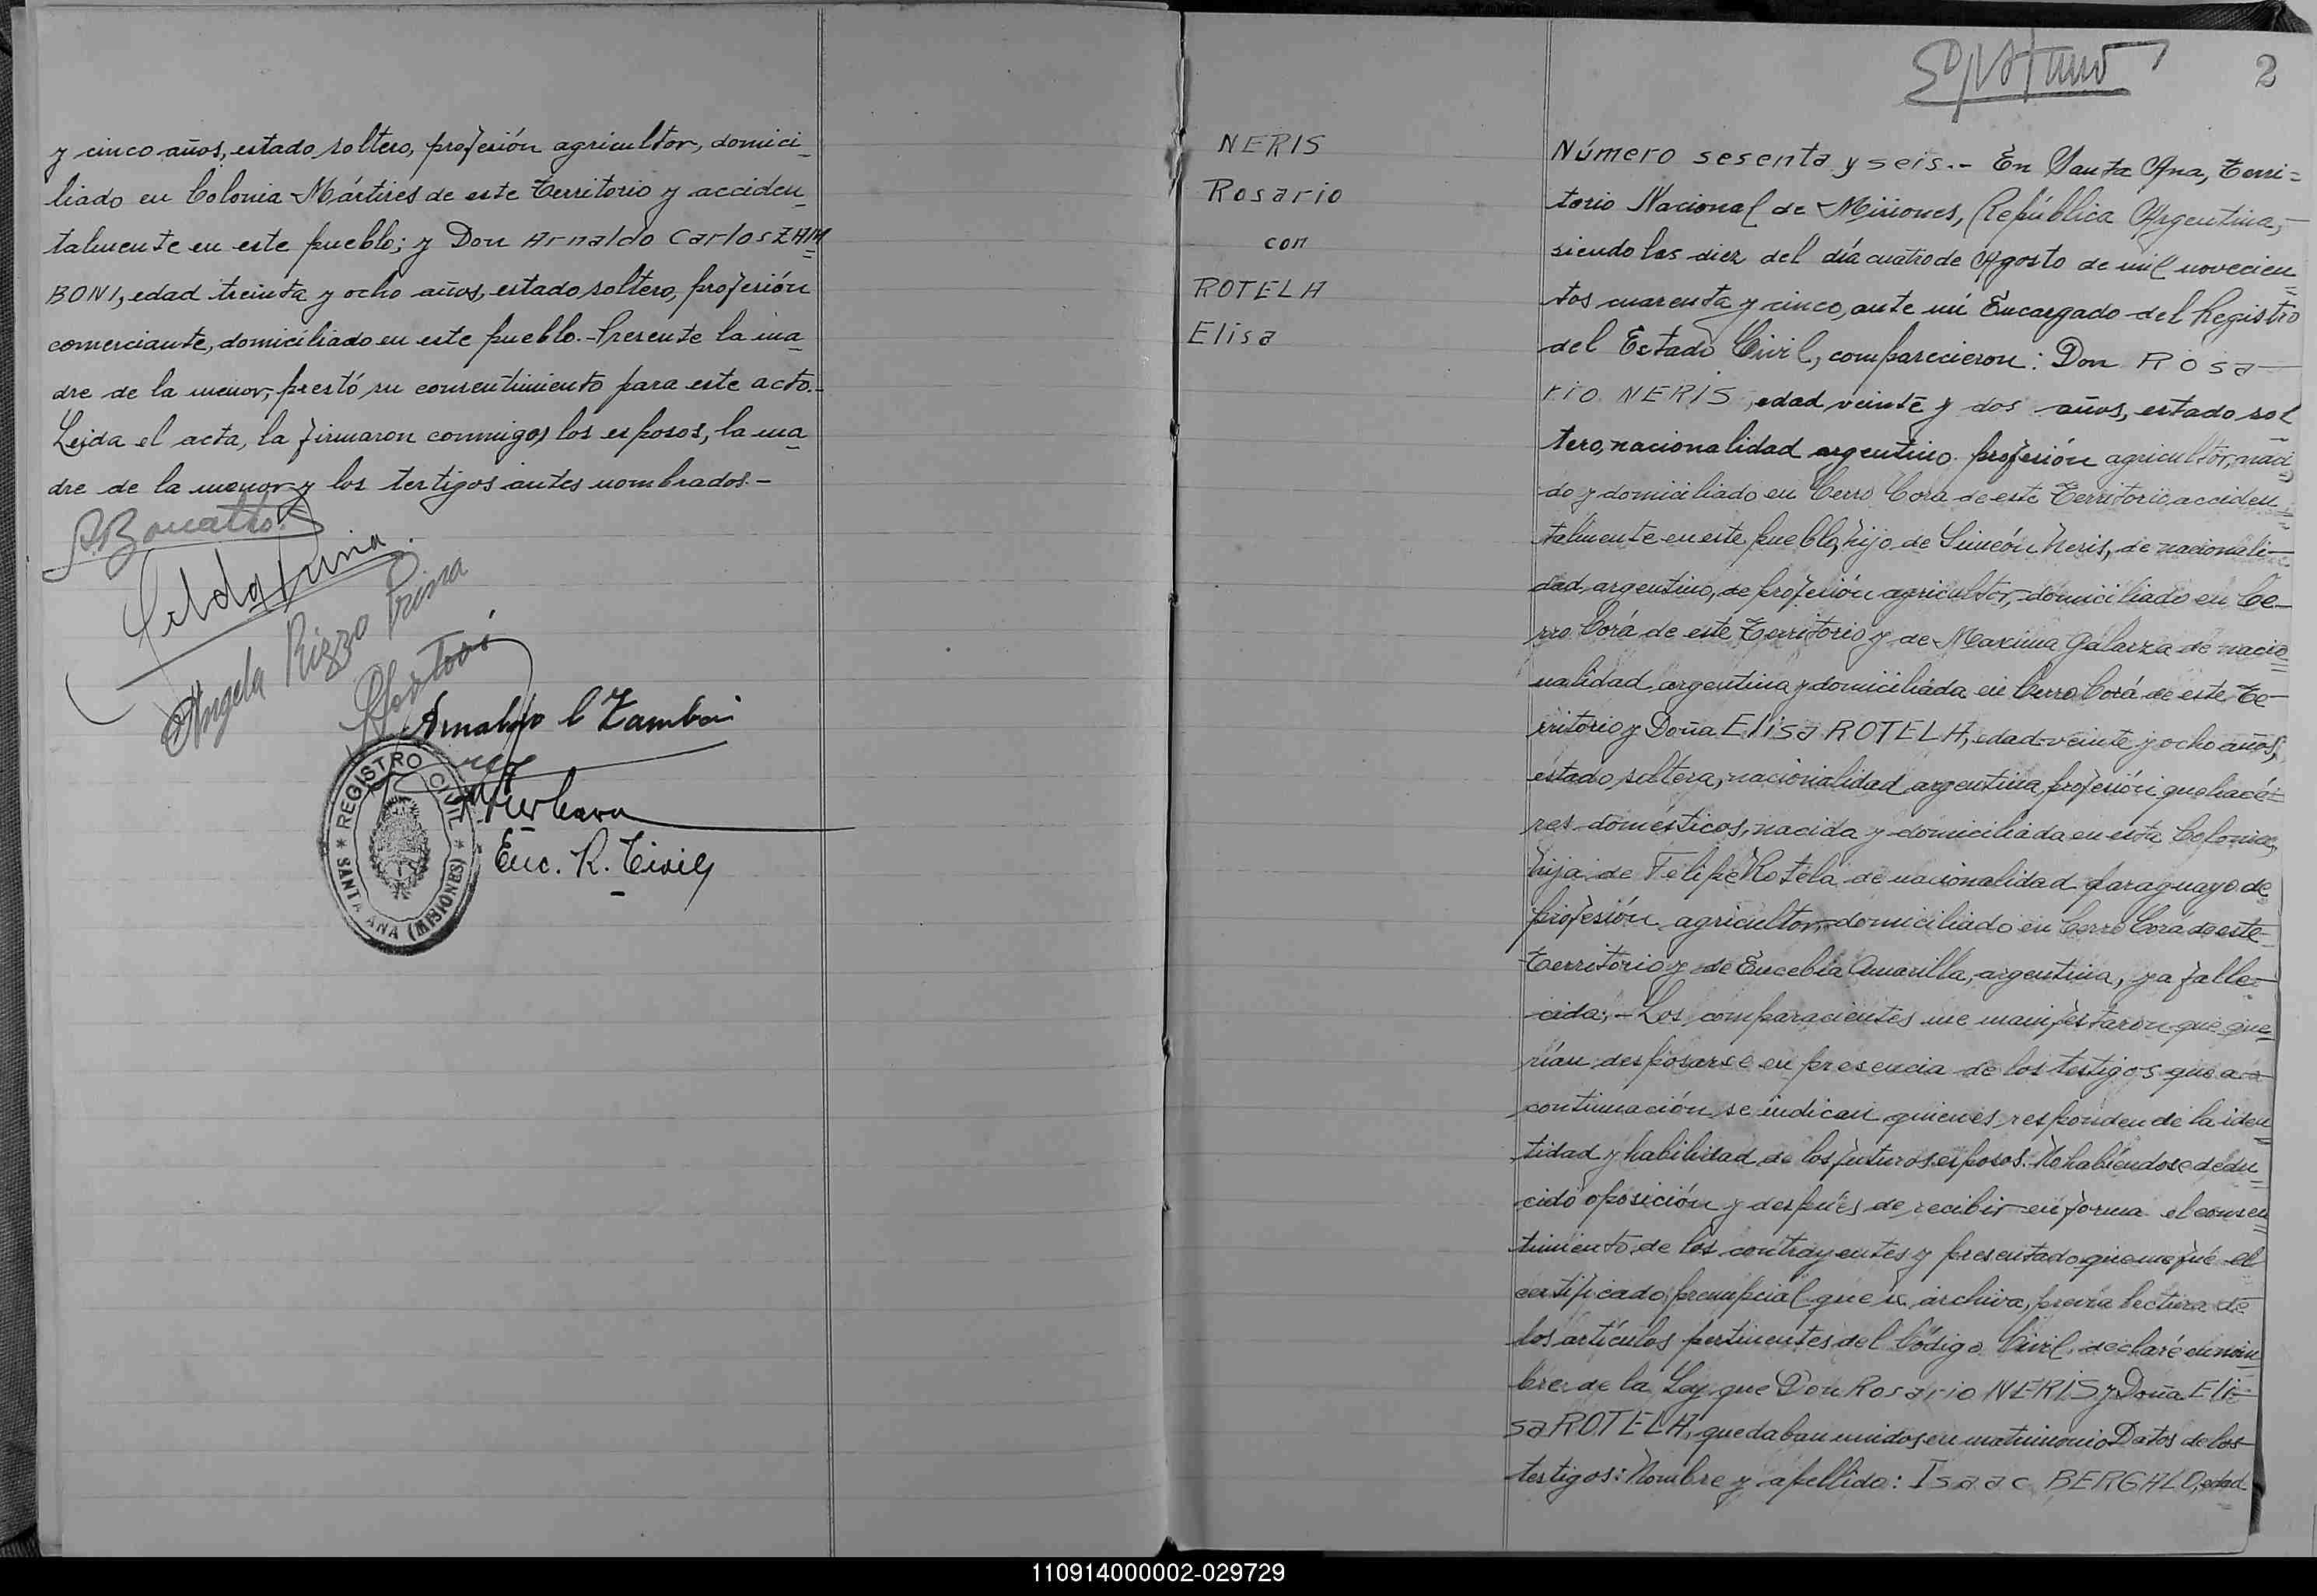 y cinco años, estado soltero, profesión agricultor, domici_
liado en Colonia Mártires de este Territorio y acciden_
talmente en este pueblo; y Don Arnaldo Carlos ZAM=
BONI, edad treinta y ocho años, estado soltero, profesión
comerciante, domiciliado en este pueblo.- Presente la ma_
dre de la menor, prestó su consentimiento para este acto.-
Leída el acta, la firmaron conmigo, los esposos, la ma_
dre de la menor y los testigos antes nombrados.-
Angela Rizzo Prina
Arnaldo C Zamboni
REGISTRO CIVIL
SANTA ANA (MISIONES)
Enc. R. Civil
2
NERIS
Rosario
con
ROTELA
Elisa
Número sesenta y seis.- En Santa Ana, Terri=
torio Nacional de Misiones, República Argentina,-
siendo las diez del día cuatro de Agosto de mil novecien=
tos cuarenta y cinco, ante mí Encargado del Registro
del Estado Civil, comparecieron: Don Rosa-
rio NERIS, edad veinte y dos años, estado sol
tero, nacionalidad argentino profesión agricultor, naci=
do y domiciliado en Cerro Cora de este Territorio acciden=
talmente en este pueblo, hijo de Simeón Neris, de nacionali-
dad argentino, de profesión agricultor, domiciliado en Ce-
rro Corá de este Territorio y de Maxima Galarza de nacio=
nalidad argentina y domiciliada en Cerro Corá de este Te-
rritorio y Doña Elisa ROTELA, edad veinte y ocho años,
estado soltera, nacionalidad argentina, profesión quehace=
res domésticos, nacida y domiciliada en esta Colonia,
hija de Felipe Rotela de nacionalidad paraguayo de
profesión agricultor, domiciliado en Cerro Corá de este
Territorio y de Eucebia Amarilla, argentina, ya falle-
cida;- Los comparacientes me manifestaron que que=
rían desposarse en presencia de los testigos que a
continuación se indican quienes responden de la iden
tidad y habilidad de los futuros esposos. No habiendose dedu=
cido oposición y después de recibir en forma el consen=
timiento de los contrayentes y presentado que me fué el
certificado prenupcial que se archiva, previa lectura de
los artículos pertinentes del Código Civil, declaré en nom
bre de la Ley que Don Rosario NERIS y Doña Eli=
sa ROTELA, quedaban unidos en matrimonio Datos de los
testigos: Nombre y apellido: Isaac BERGALO, edad
110914000002-029729